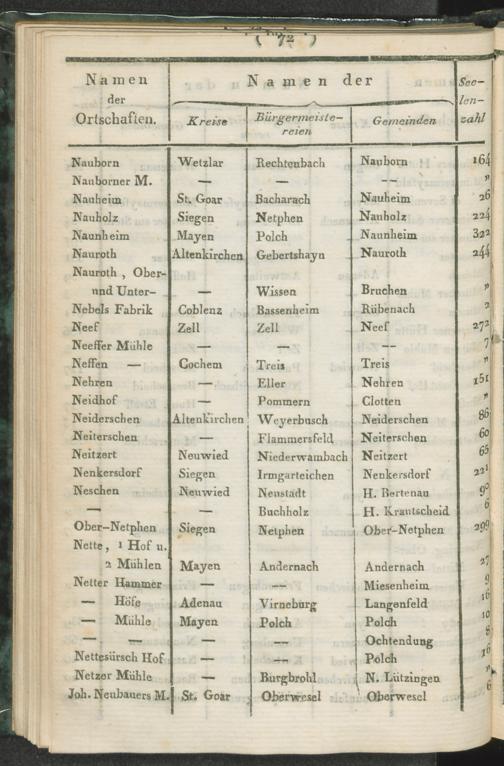 ( 72 )
Namen der Ortschaften. | Namen der | Seelenzahl
Kreise | Bürgermeistereien | Gemeinden
Nauborn | Wetzlar | Rechtenbach | Nauborn | 164
Nauborner M. | — | — | — — | "
Nauheim | St. Goar | Bacharach | Nauheim | 26
Nauholz | Siegen | Netphen | Nauholz | 224
Naunheim | Mayen | Polch | Naunheim | 322
Nauroth | Altenkirchen | Gebertshayn | Nauroth | 244
Nauroth, Ober-
und Unter- | — | Wissen | Bruchen | "
Nebels Fabrik | Coblenz | Bassenheim | Rübenach | 2
Neef | Zell | Zell | Neef | 272
Neeffer Mühle | — | — | — — | 7
Neffen — | Cochem | Treis | Treis | "
Nehren | — | Eller | Nehren | 151
Neidhof | — | Pommern | Clotten | "
Neiderschen | Altenkirchen | Weyerbusch | Neiderschen | 86
Neiterschen | — | Flammersfeld | Neiterschen | 60
Neitzert | Neuwied | Niederwambach | Neitzert | 65
Nenkersdorf | Siegen | Irmgarteichen | Nenkersdorf | 221
Neschen | Neuwied | Neustadt | H. Bertenau | 90
— | | Buchholz | H. Krautscheid | 6
Ober-Netphen | Siegen | Netphen | Ober-Netphen | 299
Nette, 1 Hof u.
2 Mühlen | Mayen | Andernach | Andernach | 27
Netter Hammer | — | — | Miesenheim | 9
— Höfe | Adenau | Virneburg | Langenfeld | 16
— Mühle | Mayen | Polch | Polch | 10
— — | — | — | Ochtendung | 8
Nettesürsch Hof | — | — | Polch | 16
Netzer Mühle | — | Burgbrohl | N. Lützingen | "
Joh. Neubauers M. | St. Goar | Oberwesel | Oberwesel | 6